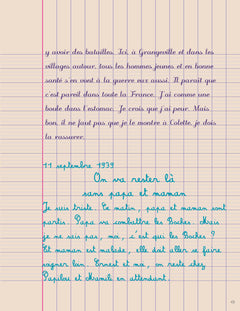 y avoir des batailles. Ici, à Grangeville et dans les
villages autour, tous les hommes jeunes et en bonne
santé s'en vont à la guerre eux aussi. Il paraît que
c'est pareil dans toute la France. J'ai comme une
boule dans l'estomac. Je crois que j'ai peur. Mais
bon, il ne faut pas que je le montre à Colette, je dois
la rassurer.
11 septembre 1939
On va rester là
sans papa et maman
Je suis triste. Ce matin, papa et maman sont
partis. Papa va combattre les Boches. Mais
je ne sais pas, moi, c'est quoi les Boches ?
Et maman est malade, elle doit aller se faire
soigner loin. Ernest et moi, on reste chez
Papilou et Mamili en attendant.